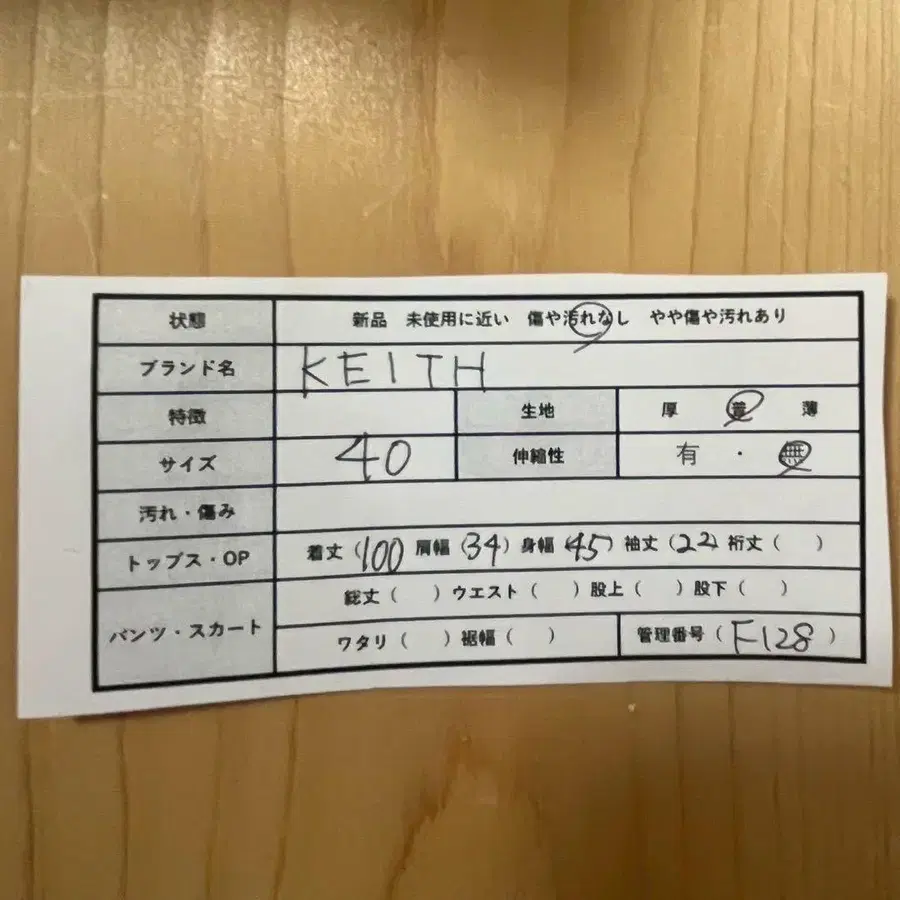 状態 新品 未使用に近い 傷や汚れなし やや傷や汚れあり
ブランド名 KEITH
特徴 生地 厚 普 薄
サイズ 40 伸縮性 有 ・ 無
汚れ・傷み
トップス・OP 着丈(100) 肩幅(34) 身幅(45) 袖丈(22) 裄丈( )
パンツ・スカート 総丈( ) ウエスト( ) 股上( ) 股下( )
ワタリ( ) 裾幅( ) 管理番号(F128)